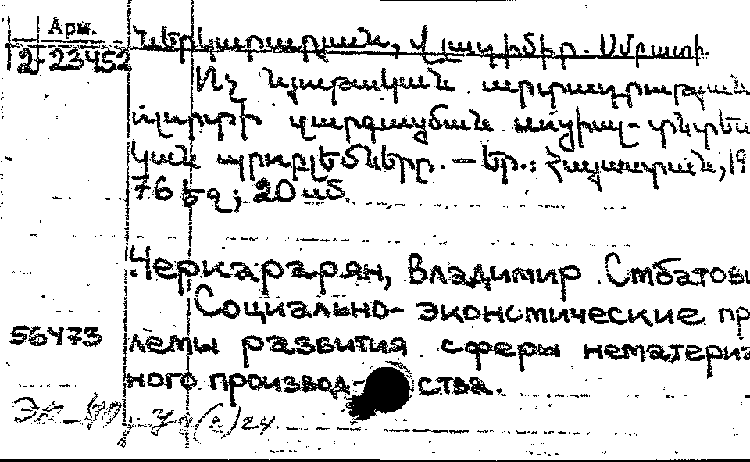 Арм.
Ներկարարյան, Վլադիմիր Սմբատի.
2-23452
Ոչ նյութական արտադրության
ոլորտի զարգացման սոցիալ-տնտես
կան պրոբլեմները. — Եր.: Հայաստան, 19
76 եջ; 20 սմ.
Черкарарян, Владимир Смбатови
Социально-экономические пр
56473
лемы развития сферы нематериа
ного производ- ства.